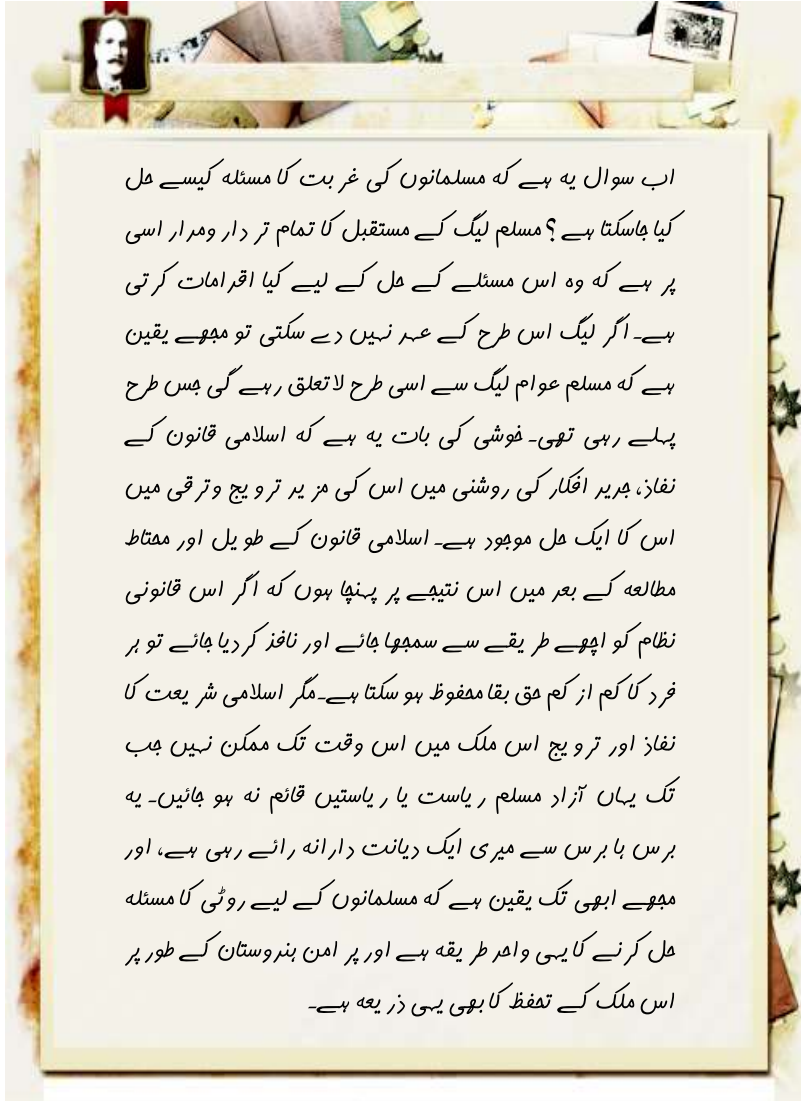 اب سوال یہ ہے کہ مسلمانوں کی غربت کا مسئلہ کیسے حل
کیا جاسکتا ہے؟ مسلم لیگ کے مستقبل کا تمام تر دار ومدار اسی
پر ہے کہ وہ اس مسئلے کے حل کے لیے کیا اقدامات کرتی
ہے۔ اگر لیگ اس طرح کے عہد نہیں دے سکتی تو مجھے یقین
ہے کہ مسلم عوام لیگ سے اسی طرح لاتعلق رہے گی جس طرح
پہلے رہی تھی۔ خوشی کی بات یہ ہے کہ اسلامی قانون کے
نفاذ، جدید افکار کی روشنی میں اس کی مزید ترویج وترقی میں
اس کا ایک حل موجود ہے۔ اسلامی قانون کے طویل اور محتاط
مطالعہ کے بعد میں اس نتیجے پر پہنچا ہوں کہ اگر اس قانونی
نظام کو اچھے طریقے سے سمجھا جائے اور نافذ کردیا جائے تو ہر
فرد کا کم از کم حق بقا محفوظ ہوسکتا ہے۔ مگر اسلامی شریعت کا
نفاذ اور ترویج اس ملک میں اس وقت تک ممکن نہیں جب
تک یہاں آزاد مسلم ریاست یا ریاستیں قائم نہ ہو جائیں۔ یہ
برس ہا برس سے میری ایک دیانت دارانہ رائے رہی ہے، اور
مجھے ابھی تک یقین ہے کہ مسلمانوں کے لیے روٹی کا مسئلہ
حل کرنے کا یہی واحد طریقہ ہے اور پر امن ہندوستان کے طور پر
اس ملک کے تحفظ کا بھی یہی ذریعہ ہے۔